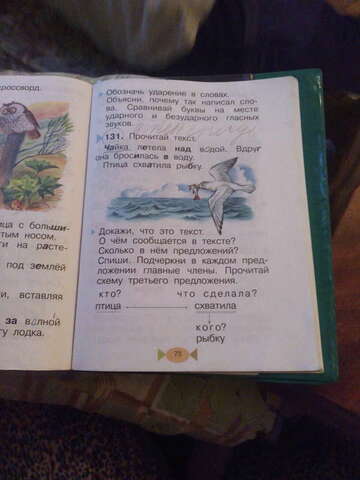 россворд.
ца с больши-
тым носом,
ти на расте-
под землёй
и, вставляя
за волной
гу лодка.
Обозначь ударение в словах.
Объясни, почему так написал сло-
ва. Сравнивай буквы на месте
ударного и безударного гласных
звуков.
131. Прочитай текст.
Чайка летела над водой. Вдруг
она бросилась в воду.
Птица схватила рыбку.
Докажи, что это текст.
О чём сообщается в тексте?
Сколько в нём предложений?
Спиши. Подчеркни в каждом пред-
ложении главные члены. Прочитай
схему третьего предложения.
кто? что сделала?
птица схватила
кого?
рыбку
73